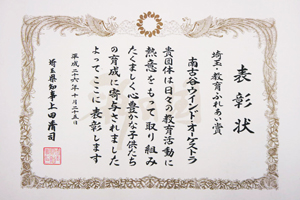 表彰状
埼玉・教育ふれあい賞
南古谷ウインド・オーケストラ
貴団体は日々の教育活動に
熱意をもって取り組み
たくましく心豊かな子供たち
の育成に寄与されました
よってここに表彰します
平成二十六年十月二十五日
埼玉県知事上田清司